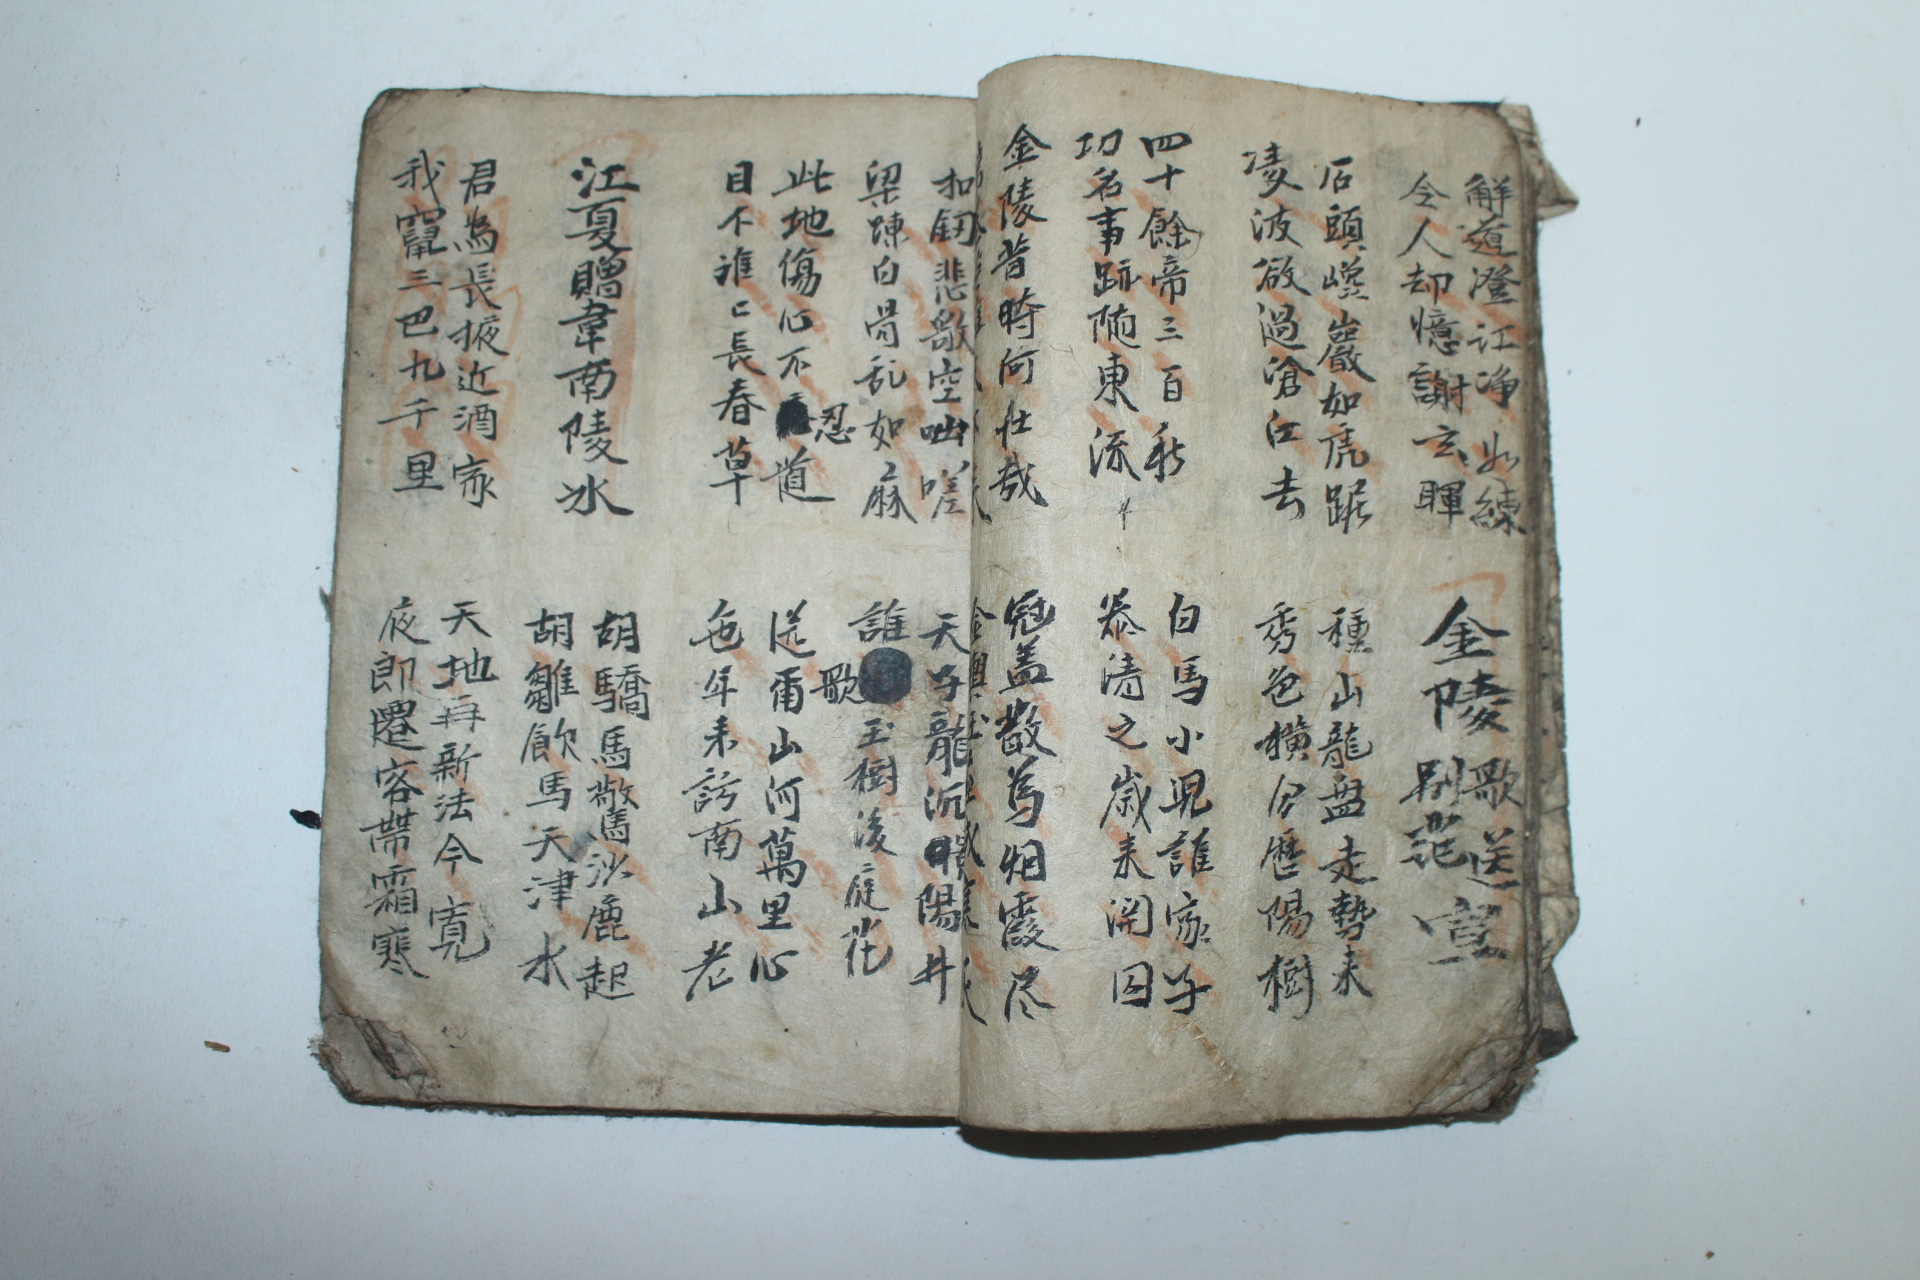 解道澄江净如練
令人却憶謝玄暉
金陵歌送别范宣
石頭巉巖如虎踞
凌波欲過滄江去
種山龍盤走勢来
秀色橫分歷陽樹
四十餘帝三百秋
功名事跡随東流
白馬小児誰家子
泰清之歲来関囚
金陵昔時何壮哉
冠盖散為烟霞尽
扣釰悲歌空咄嗟
梁陳白骨乱如麻
天子龍沉陽井
誰歌玉樹後庭花
此地傷心不忍道
目下誰匕長春草
送爾山河萬里心
他年来訪南山老
江夏贈韋南陵氷
胡驕馬驚沙塵起
胡雛飲馬天津水
君為長掖近酒家
我竄三巴九千里
天地再新法令寬
夜郎遷客帶霜寒